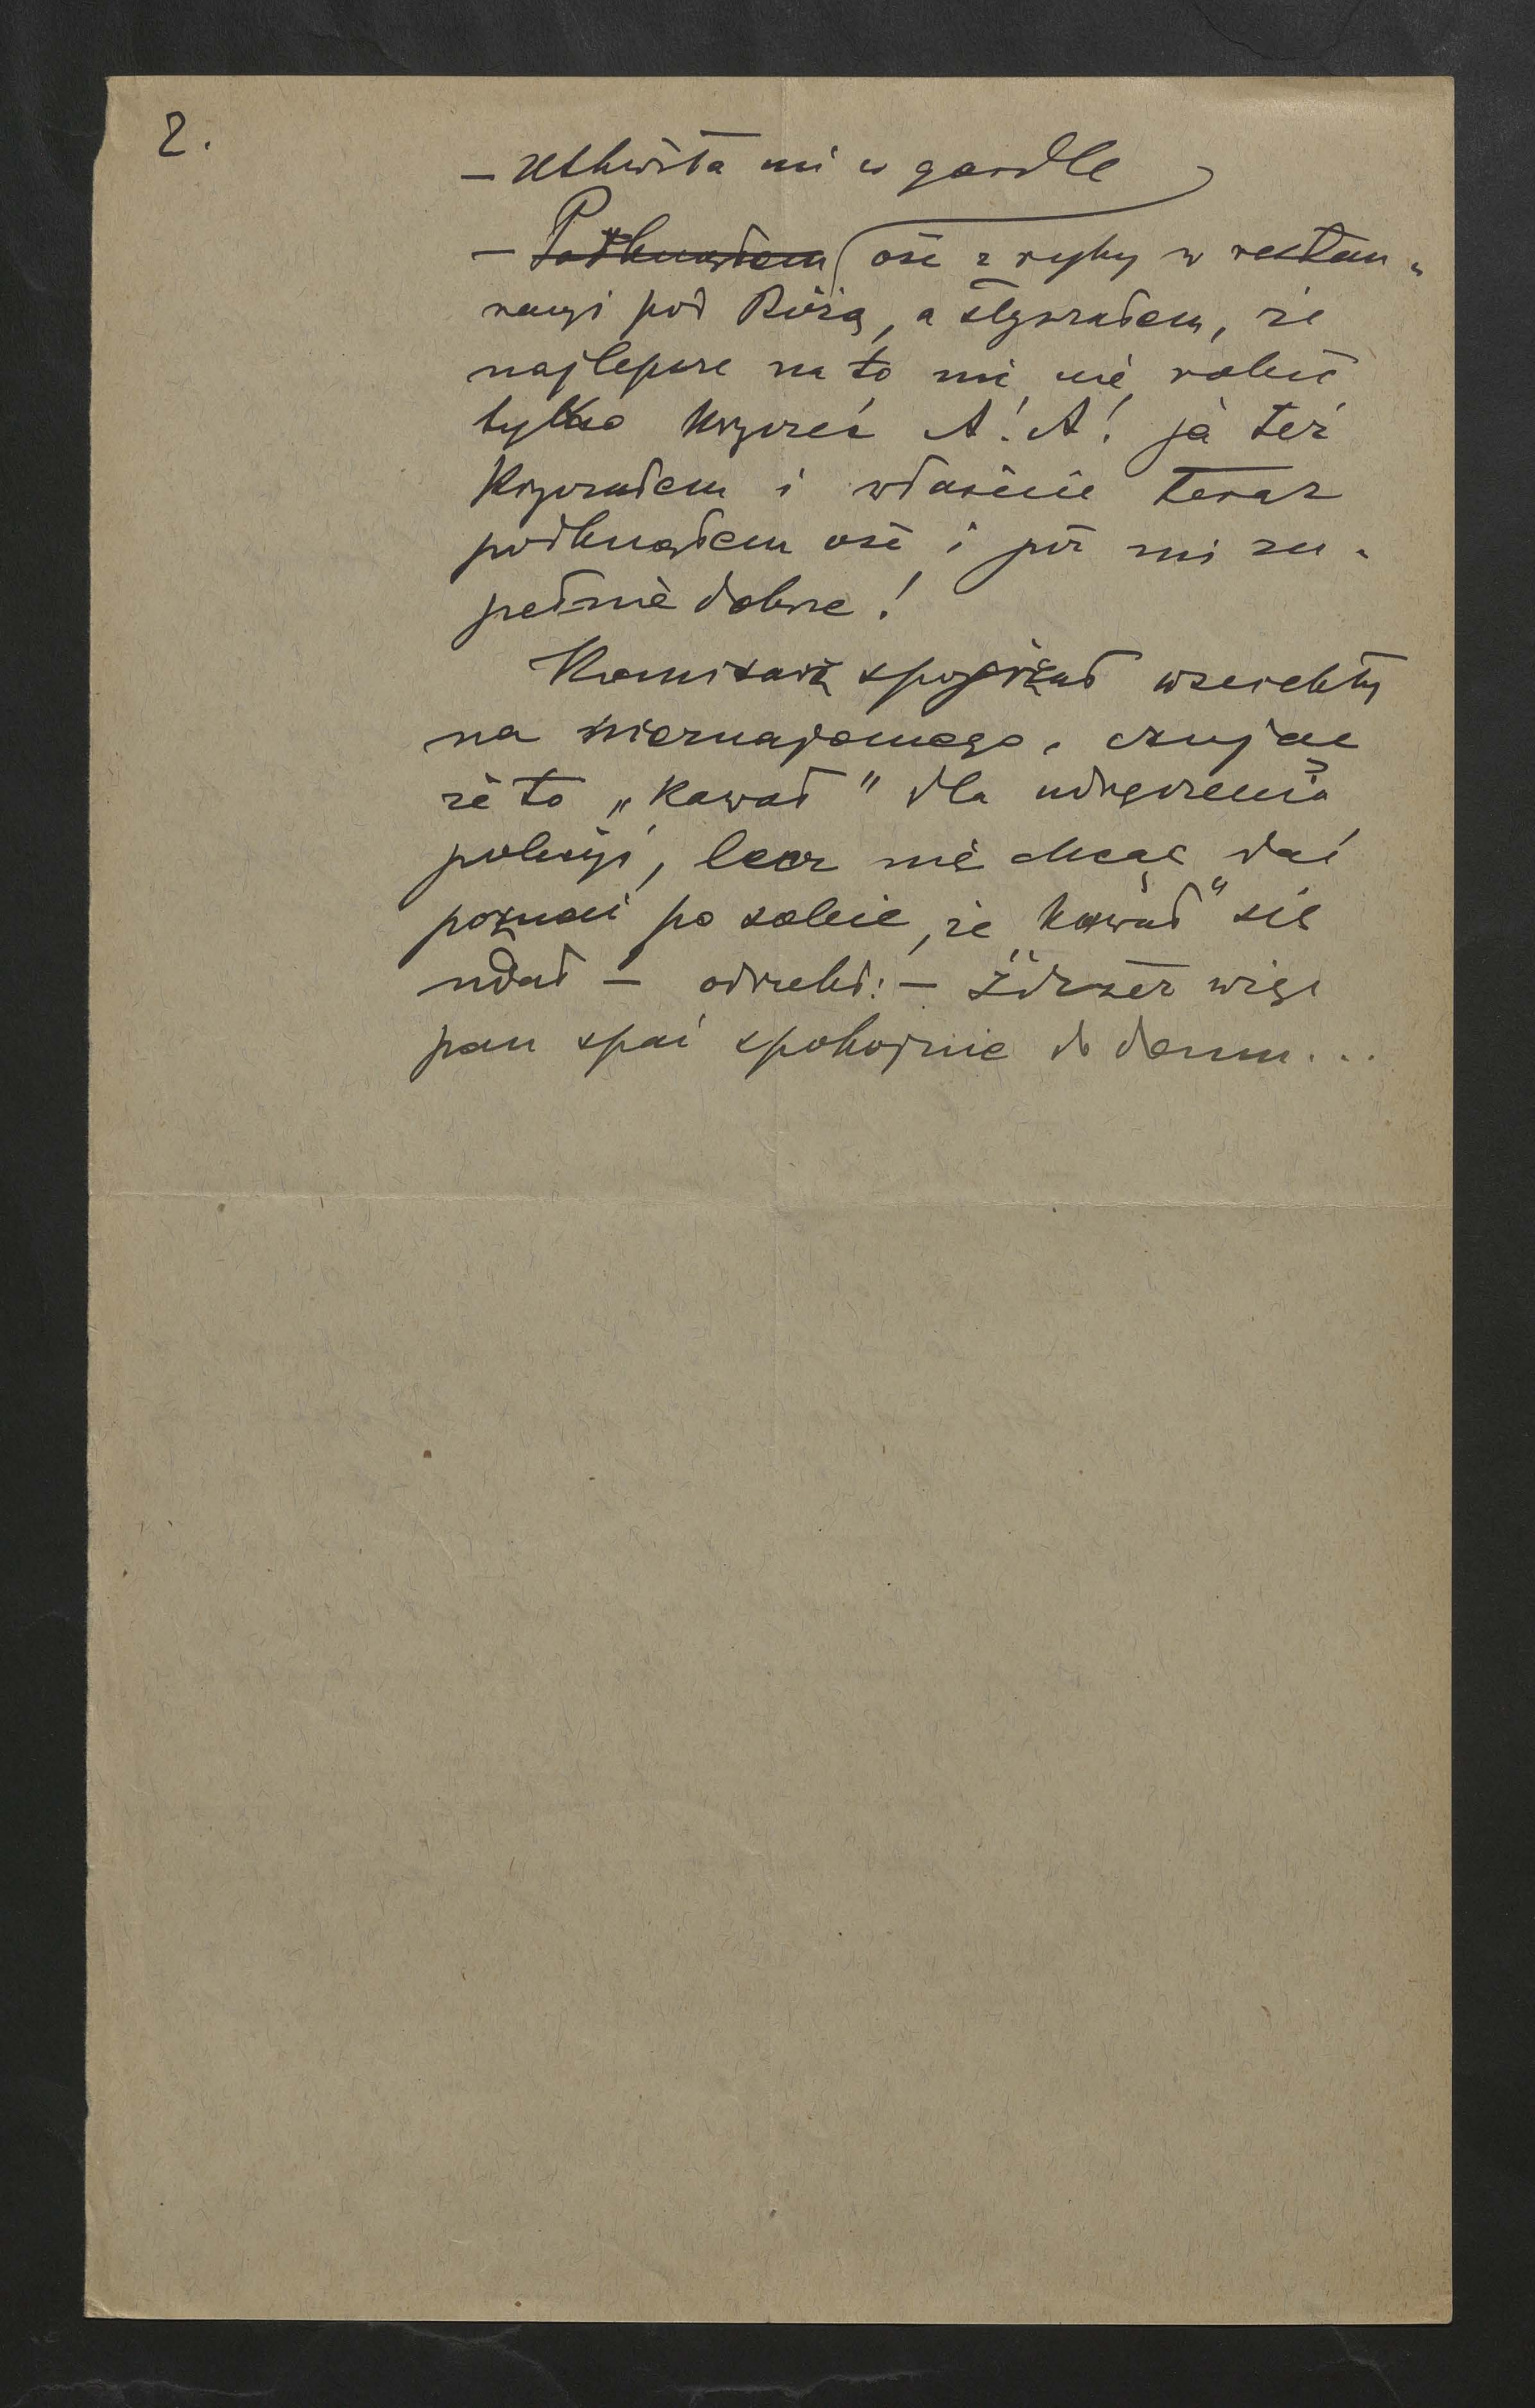 2.
— utkwiła mi w gardle
— Połknąłem ość z ryby w restau„
racyi pod Różą, a słyszałem, że
najlepsze na to nic nie robić
tylko krzyczeć A! A! ja też
krzyczałem i właśnie teraz
połknąłem ość i już mi zu„
pełnie dobrze!
Komisarz spojrzał wściekły
na nieznajomego, czując
że to „kawał" dla udręczenia
policyi, lecz nie chcąc dać
poznać po sobie, że „kawał" się
udał — odrzekł: — Idźże więc
pan spać spokojnie do domu...